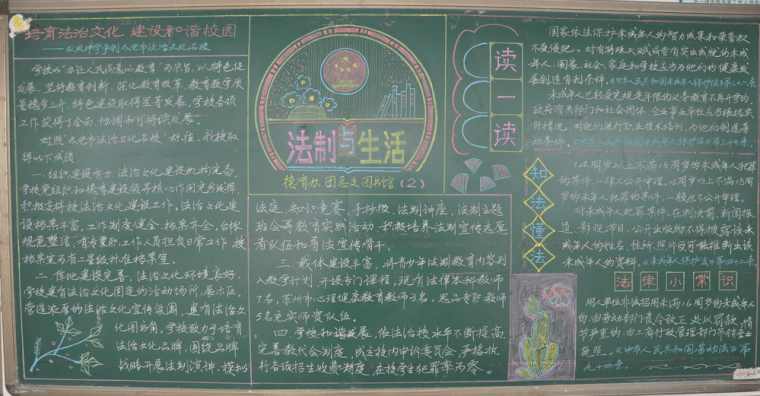 培育法治文化 建设和谐校园
学校以"办让人民满意的教育"为宗旨,以特色促
发展,坚持教育创新,深化教育改革,教育教学质
量稳步上升,特色建设取得显著发展,学校各项
工作获得了全面、协调和可持续发展。
得以下成绩
一、组织建设有力,法治文化建设机构完备,
学校党组织和德育建设领导核心作用完全发挥,
积极支持校法治文化建设工作。法治文化建
设档案丰富,工作制度健全,档案齐全,台帐
规范整洁,
二、阵地建设完善,法治文化环境良好,
学校建有法治文化图览的活动场所、展示区,
营造浓厚的法治文化宣传氛围,建有法治文
化图书角。学校致力于培育
法治文化品牌,围绕品牌
战略开展法制演讲、模拟
法制与生活
德育办 团总支 图书馆(2)
法庭、知识竞赛、手抄报、法制讲座、法制主题
班会等教育实践活动,积极培养法制宣传志愿
者队伍和普法宣传骨干。
三、载体建设丰富,将青少年法制教育内容列
入教学计划,开设专门课程。现有法律本科教师
7名,苏州市心理健康教育教师3名,思品专职教师
5名充实师资队伍。
四、学校和谐发展,依法治校水平不断提高,
完善教代会制度,成立校内申诉委员会,严格执
行各项招生收费制度,在校学生犯罪率为零。
读一读
国家依法保护未成年人的智力成果和荣誉权
不受侵犯。对有特殊天赋或者有突出成就的未成
年人,国家、社会、家庭和学校应当为他们的健康发
展创造有利条件。
未成年人已经接受规定年限的义务教育不再升学的,
政府有关部门和社会团体、企业事业单位应当根据实
际情况,对他们进行职业技术培训,为他们创造劳
动条件。
知法懂法
14周岁以上不满16周岁的未成年人犯罪
的案件,一律不公开审理。16周岁以上不满18周岁
的未成年人犯罪的案件,一般也不公开审理。
对未成年人犯罪案件,在判决前,新闻报
道、影视节目、公开出版物不得披露该未
成年人的姓名、住所、照片及可能推断出该
未成年人的资料。
法律小常识
用人单位非法招用未满16周岁的未成年人
的,由劳动部门责令改正,处以罚款,情
节严重的,由工商行政管理部门吊销营业
执照。《中华人民共和国劳动法》第
九十四条。